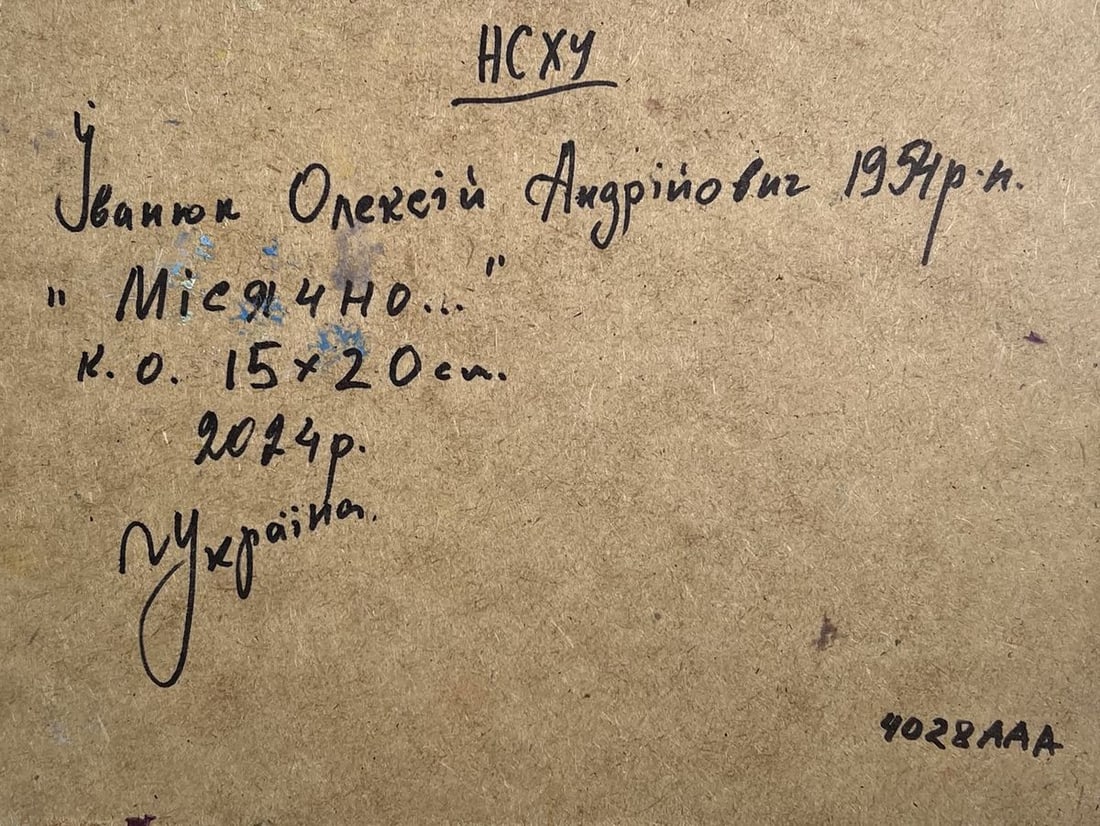 НСХУ
Іванюк Олексій Андрійович 1954р.н.
"Місячно..."
к.о. 15×20см.
2024р.
Україна.
4028AAA